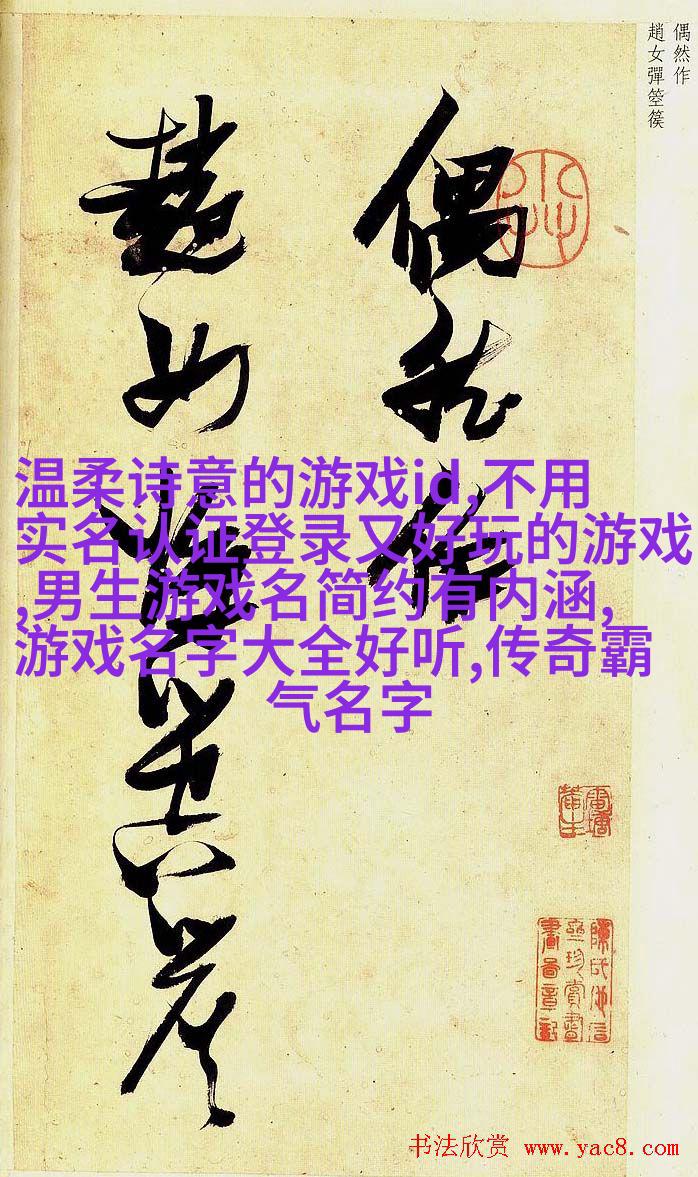 偶然作
趙女彈箜篌
偶然作
趙女彈箜篌
温柔诗意的游戏id,不用
实名认证登录又好玩的游戏
,男生游戏名简约有内涵,
游戏名字大全好听,传奇霸
气名字
书法欣赏 www.yac8.com